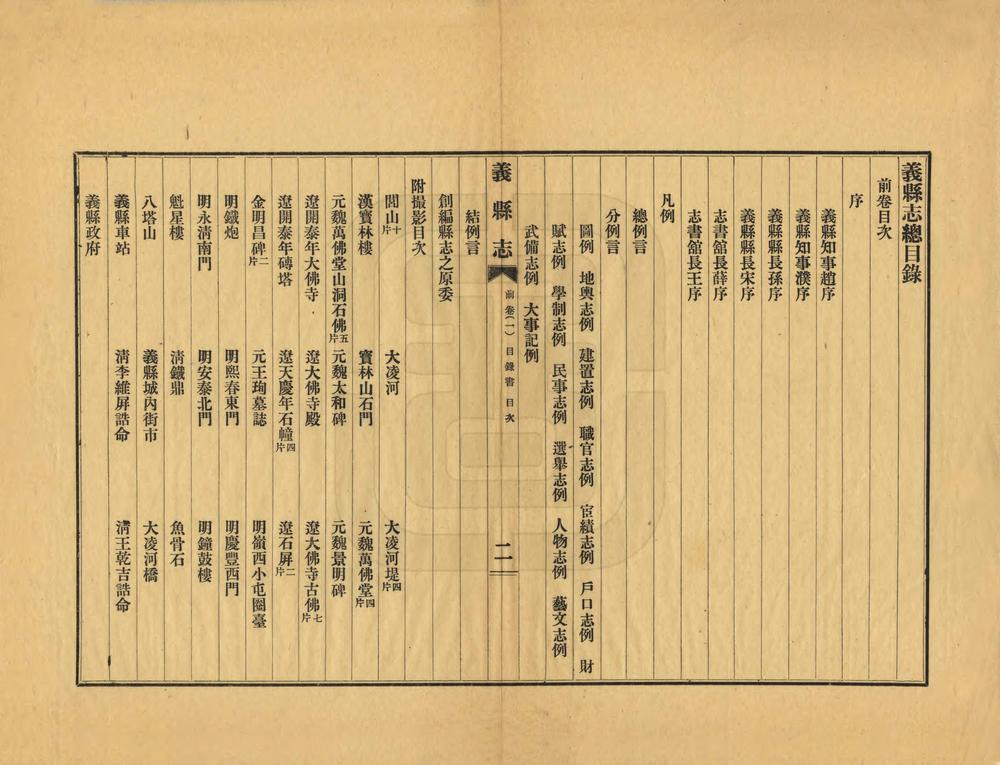 義縣志總目錄
前卷目次
序
義縣知事趙序
義縣知事濮序
義縣縣長孫序
義縣縣長宋序
志書舘長薛序
志書舘長王序
凡例
總例言
分例言
圖例 地輿志例 建置志例 職官志例 宦績志例 戶口志例 財
賦志例 學制志例 民事志例 選舉志例 人物志例 藝文志例
武備志例 大事記例
結例言
創編縣志之原委
義縣志 前卷(一) 目錄書 目次 二
附撮影目次
閭山十片 大凌河 大凌河堤四片
漢寶林樓 寶林山石門 元魏萬佛堂四片
元魏萬佛堂山洞石佛五片 元魏太和碑 元魏景明碑
遼開泰年大佛寺 遼大佛寺殿 遼大佛寺古佛七片
遼開泰年磚塔 遼天慶年石幢四片 遼石屏二片
金明昌碑二片 元王珣墓誌 明嶺西小屯圈臺
明鐵炮 明熙春東門 明慶豐西門
明永淸南門 明安泰北門 明鐘鼓樓
魁星樓 淸鐵鼎 魚骨石
八塔山 義縣城內街市 大凌河橋
義縣車站 淸李維屏誥命 淸王乾吉誥命
義縣政府